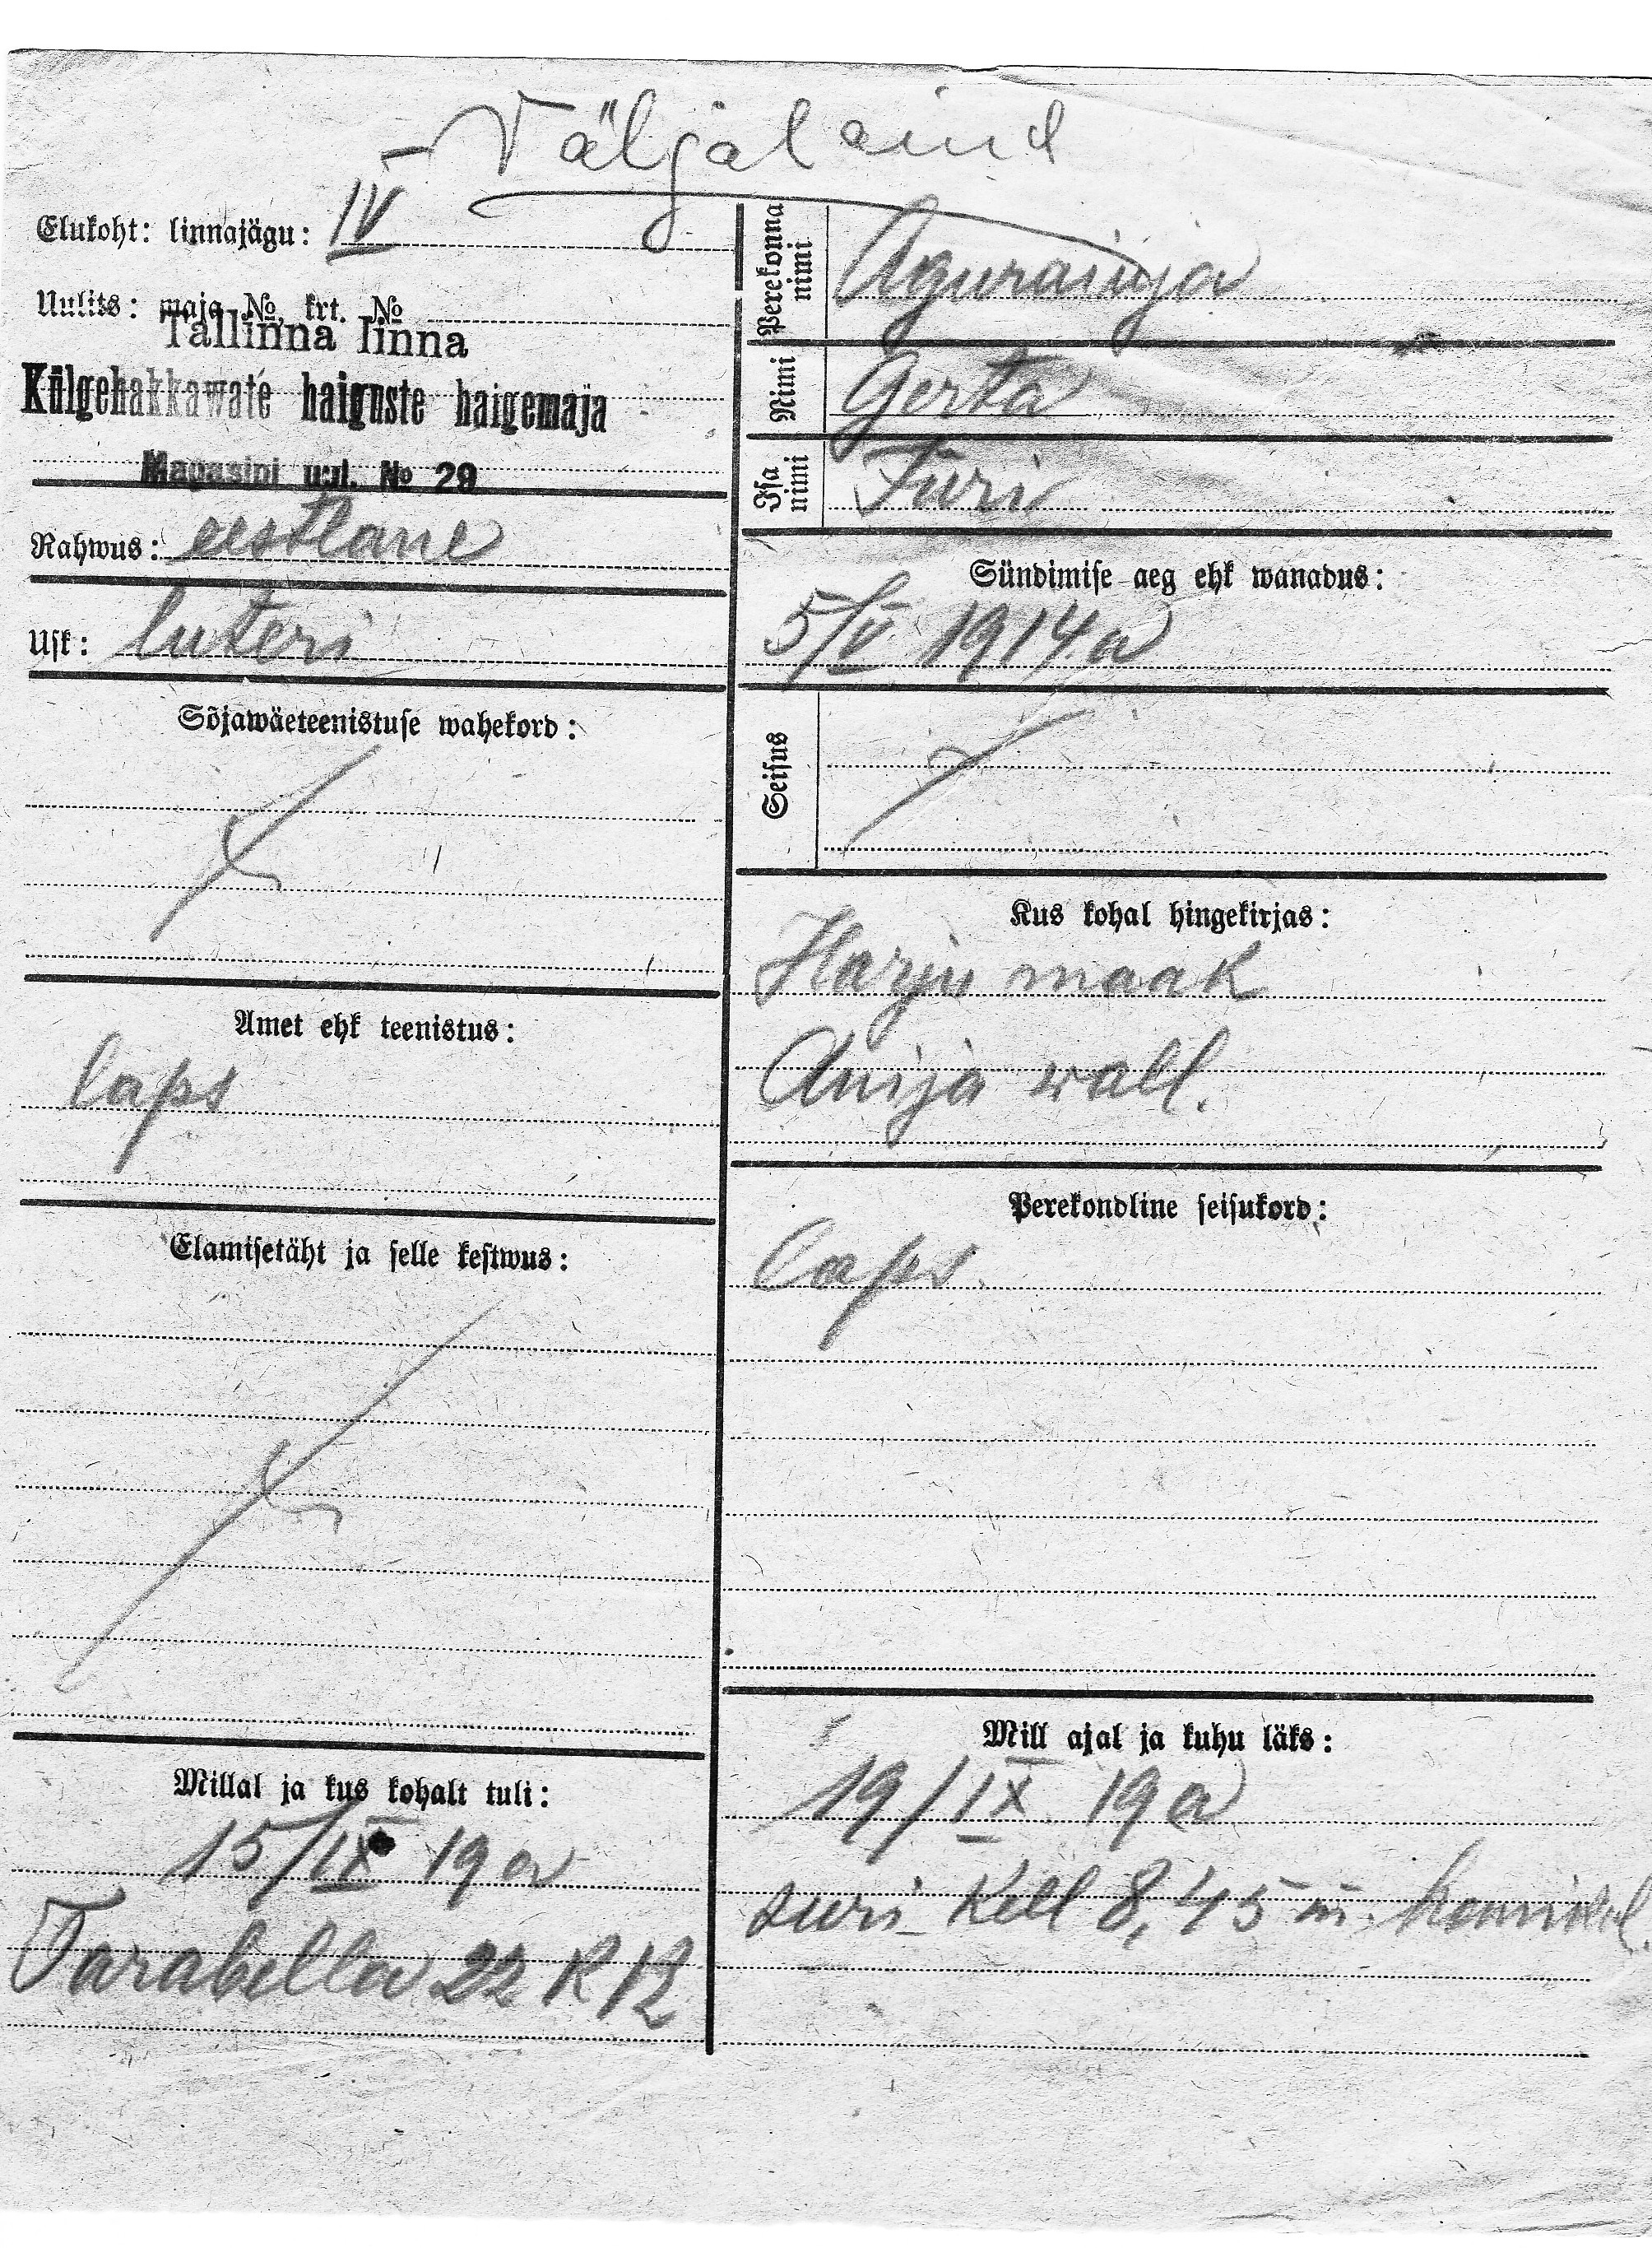 Väljaläind
Elukoht: linnajägu: IV
Uulits: maja No, krt. No
Tallinna linna
Külgehakkawate haiguste haigemaja
Magasini uul. No 29
Rahwus: eestlane
Usk: luteri
Sõjawäeteenistuse wahekord:
Amet ehk teenistus:
laps
Elamisetäht ja selle kestwus:
Millal ja kus kohalt tuli:
15/IX 19 a
Tarabella 22 K 12
Perekonna nimi Aguraiuja
Nimi Gerta
Isa nimi Jüri
Sündimise aeg ehk wanadus:
5/V 1914 a
Seisus
Kus kohal hingekirjas:
Harju maak
Anija wall.
Perekondline seisukord:
laps
Mill ajal ja kuhu läks:
19/IX 19 a
suri kell 8,45 m. hommikul.